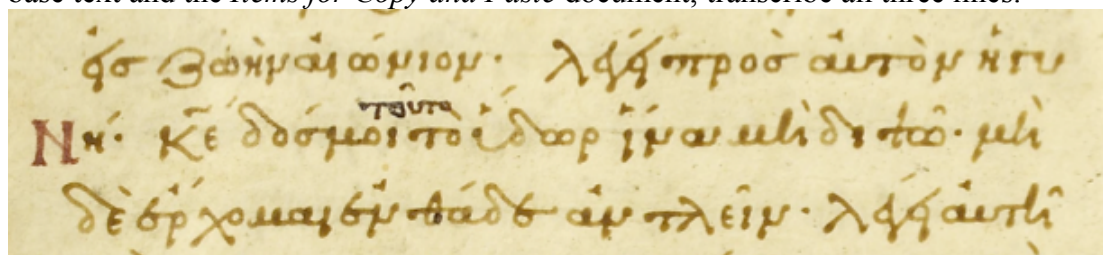 base text and the Items for Copy and Paste document, transcribe all three lines.
εἰς ζωὴν αἰώνιον· λέγει πρὸς αὐτὸν ἡ γυ
τοῦτο
νή· κ̅ε̅ δός μοι τὸ ὕδωρ ἵνα μὴ διψῶ· μὴ
δὲ ἔρχομαι ἐνθάδε ἀντλεῖν· λέγει αὐτῆ